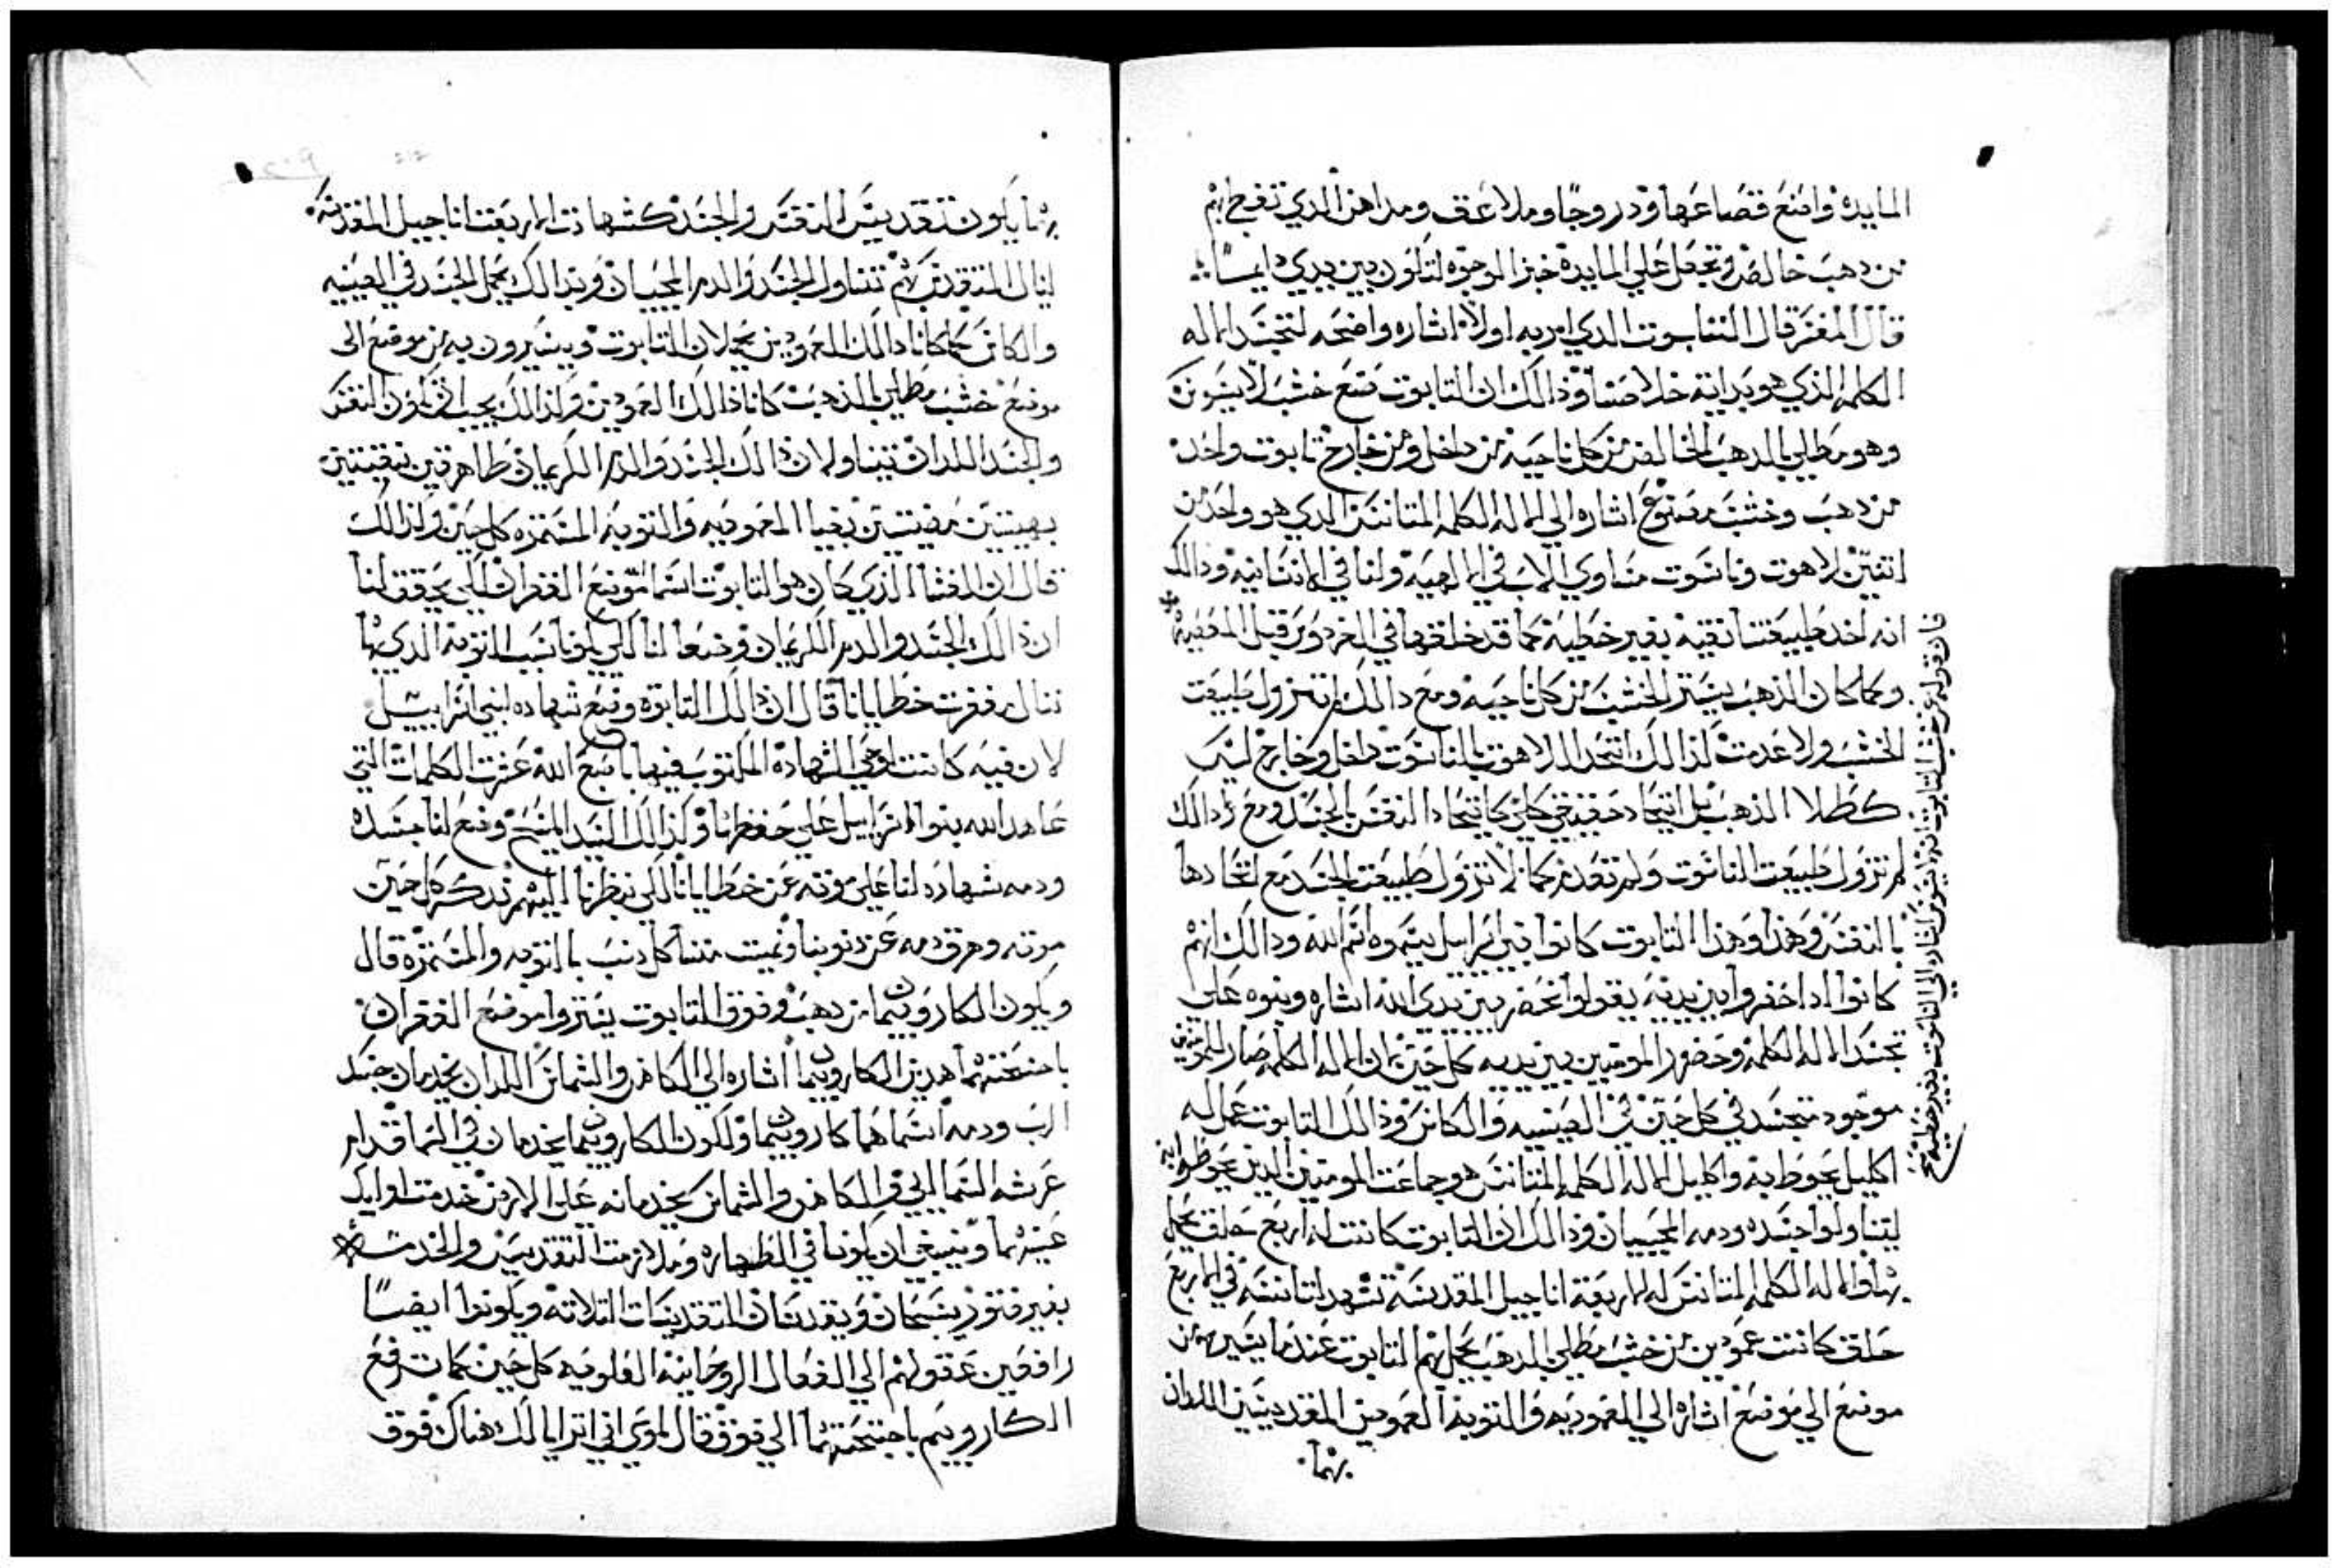 المايده واصنع قصاعها ودروجًا وملاعق ومداهن الدي تفرع بهم
من دهب خالص وتجعل علي المايده خبز الوجوه لتكون بين يدي دايمًا
قال المفسر قال التابوت الدي امر به اولا اشاره واضحه لتجسد الاله
الكلمه الذي هو بدايه خلاصنا وذالك ان التابوت صنع خشب لا يسوس
وهو مطلي بالدهب الخالص من كل ناحيه من داخل ومن خارج تابوت واحد
من دهب وخشب مصنوع اشاره الي الاله الكلمه المتانس الدي هو واحد من
اتنين لاهوت وناسوت مساوي للاب في الالهيه ولنا في الانسانيه ودالك
انه اخد طبيعتنا نقيه بغير خطيه كما قد خلقها في الفردوس قبل المعصيه
وكما كان الذهب يستر الخشب من كل ناحيه ومع دالك لم تزول طبيعت
الخشب ولا عدمت لذالك اتحد اللاهوت بالناسوت داخل وخارج ليس
كطلا الذهب بل اتحاد حقيقي كلي كاتحاد النفس بالجسد ومع ذالك
لم تزول طبيعت الناسوت ولم تعدم كما لا تزول طبيعت الجسد مع اتحادها
بالنفس وهذا وهذا التابوت كانوا بني اسراييل يسموه اسم الله ودالك انهم
كانوا ادا حضروا بين يديه يقولوا نحضر بين يدي الله اشاره ونبوه علي
تجسد الاله الكلمه وحضور المومنين بين يديه كل حين لان الاله الكلمه صار للمومنين
موجود متجسد في كل حين في الصينيه والكاس وذالك التابوت عمل له
اكليل يحوط به واكليل الاله الكلمه المتانس هو جماعت المومنين الذين يحوطوا به
ليتناولوا جسده ودمه المحييان وذالك ان التابوت كانت له اربع حلق يحمل
بها والاله الكلمه المتانس له الاربعة اناجيل المقدسة تشهد لتانسه في الاربع
حلق كانت عمودين من خشب مطلي بالدهب يحمل بهم التابوت عندما يسير به من
موضع الي موضع اشاره الي المعموديه والتوبه العمودين المقدسين اللدان
بهما
فان قوله عن خشب التابوت انه لا يسوس اشاره الي الناسوت بغير خطيه
بهما يكون تقديس النفس والجسد كشهادت الاربعت اناجيل المقدسه
لينال المتقدس بهم تناول الجسد والدم المحييان وبذالك يحمل الجسد في الصينيه
والكاس كما كانا دالك العمودين يحملان التابوت ويسيرون به من موضع الى
موضع خشب مطلي بالذهب كانا ذالك العمودين ولذالك يجب ان تكون النفس
والجسد اللدان تتناولان ذالك الجسد والدم الكريمان طاهرتين نقيتين
بهيتين مضيتين بضيا المعموديه والتوبه المستمره كل حين ولذالك
قال ان الغشا الذي كان هو التابوت اسما موضع الغفران لكي يحقق لنا
ان ذالك الجسد والدم الكريمان وضعا لنا لكي يكونا سبب التوبه الدي بها
ننال مغفرت خطايانا قال ان ذالك التابوت وضع شهاده لبني اسراييل
لان فيه كانت لوحي الشهاده المكتوب فيها باصبع الله عشرت الكلمات التي
عاهد الله بنوا اسراييل علي حفظها ولذالك السيد المسيح وضع لنا جسده
ودمه شهاده لنا علي موته عن خطايانا لكي بنظرنا اليهم ندكر كل حين
موته وهرق دمه عن دنوبنا ونميت منا كل دنب بالتوبه والمستمره قال
ويكون الكاروبيما من دهب وفوق التابوت يستروا موضع الغفران
باجنحتهما هدين الكاروبيما اشاره الي الكاهن والشماس اللدان يخدمان جسد
الرب ودمه اسماهما كاروبيما ولكون الكاروبيما يخدمان في السما قدام
عرشه السمايي والكاهن والشماس يخدمانه علي الارض خدمت اوليك
عينهما وينبغي ان يكونا في الطهاره وملازمت التقديس والخدمت
بغير فتور يسبحان ويقدسان التقديسات التلاته ويكونوا ايضًا
رافعين عقولهم الي الفعال الروحانيه العلويه كل حين كما ترفع
الكاروبيم باجنحتهما الي فوق قال لموسي اني اترايا لك هناك فوق